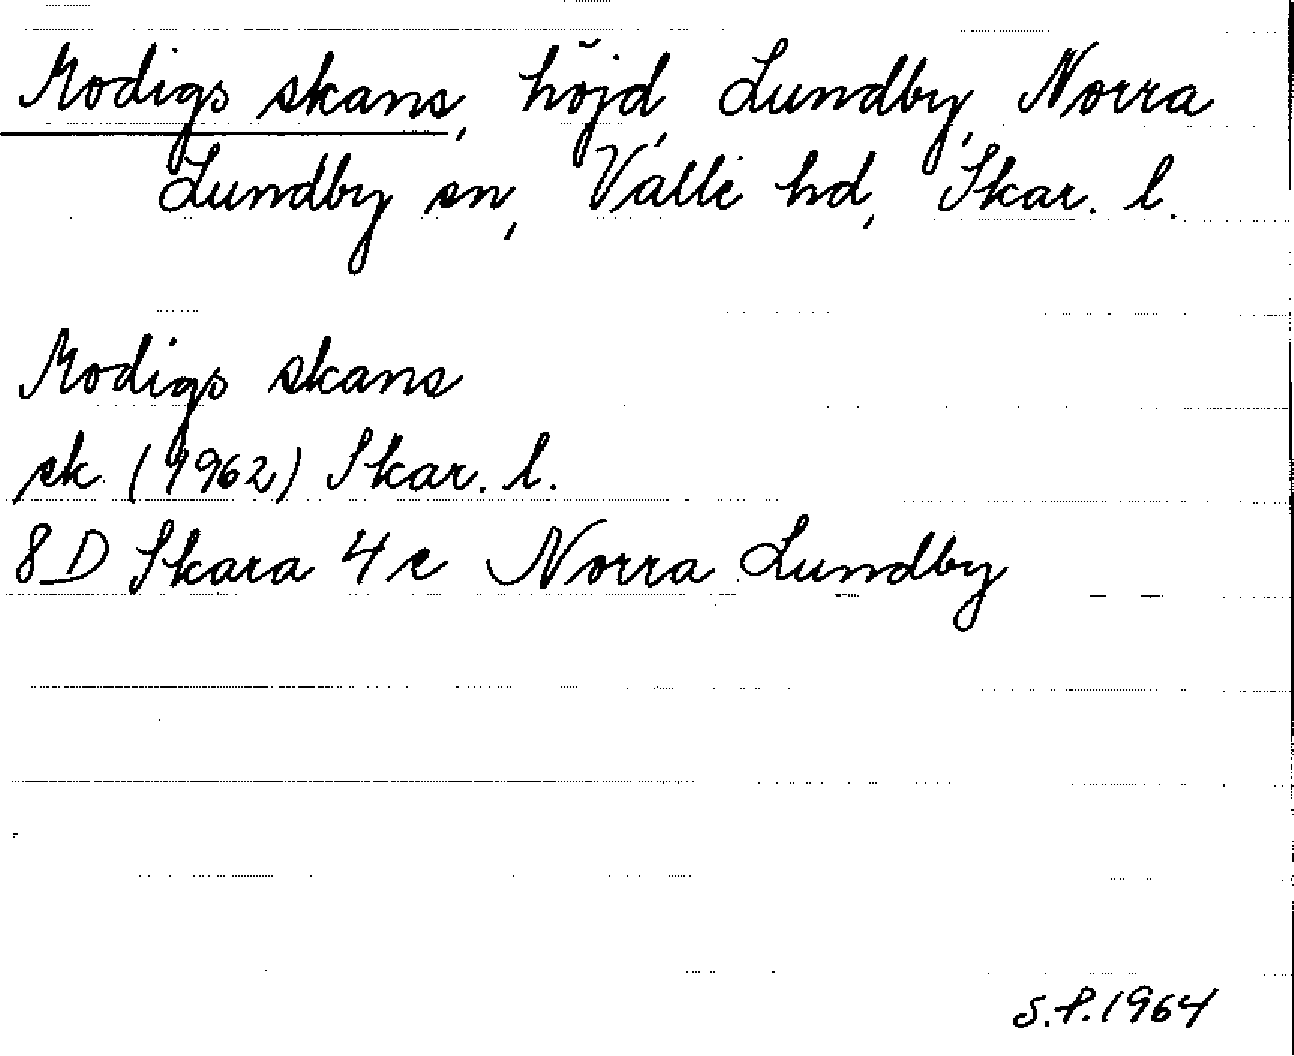 Modigs skans, höjd, Lundby, Norra
Lundby sn, Valle hd, Skar. l.
Modigs skans
ek (1962) Skar. l.
8D Skara 4e Norra Lundby
S.P. 1964